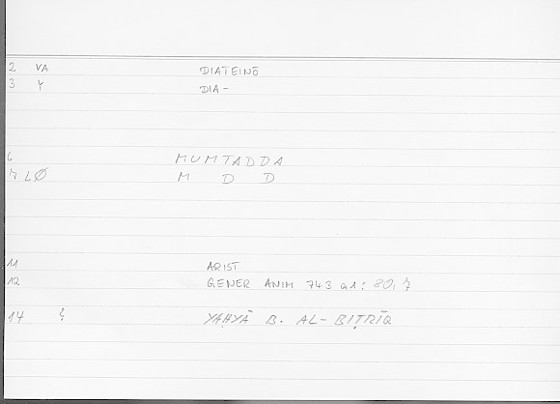 2 VA DIATEINŌ
3 Y DIA-
6 MUMTADDA
7 LØ M D D
11 ARIST
12 GENER ANIM 743 a1: 80,7
14 YAḤYĀ B. AL-BIṬRĪQ